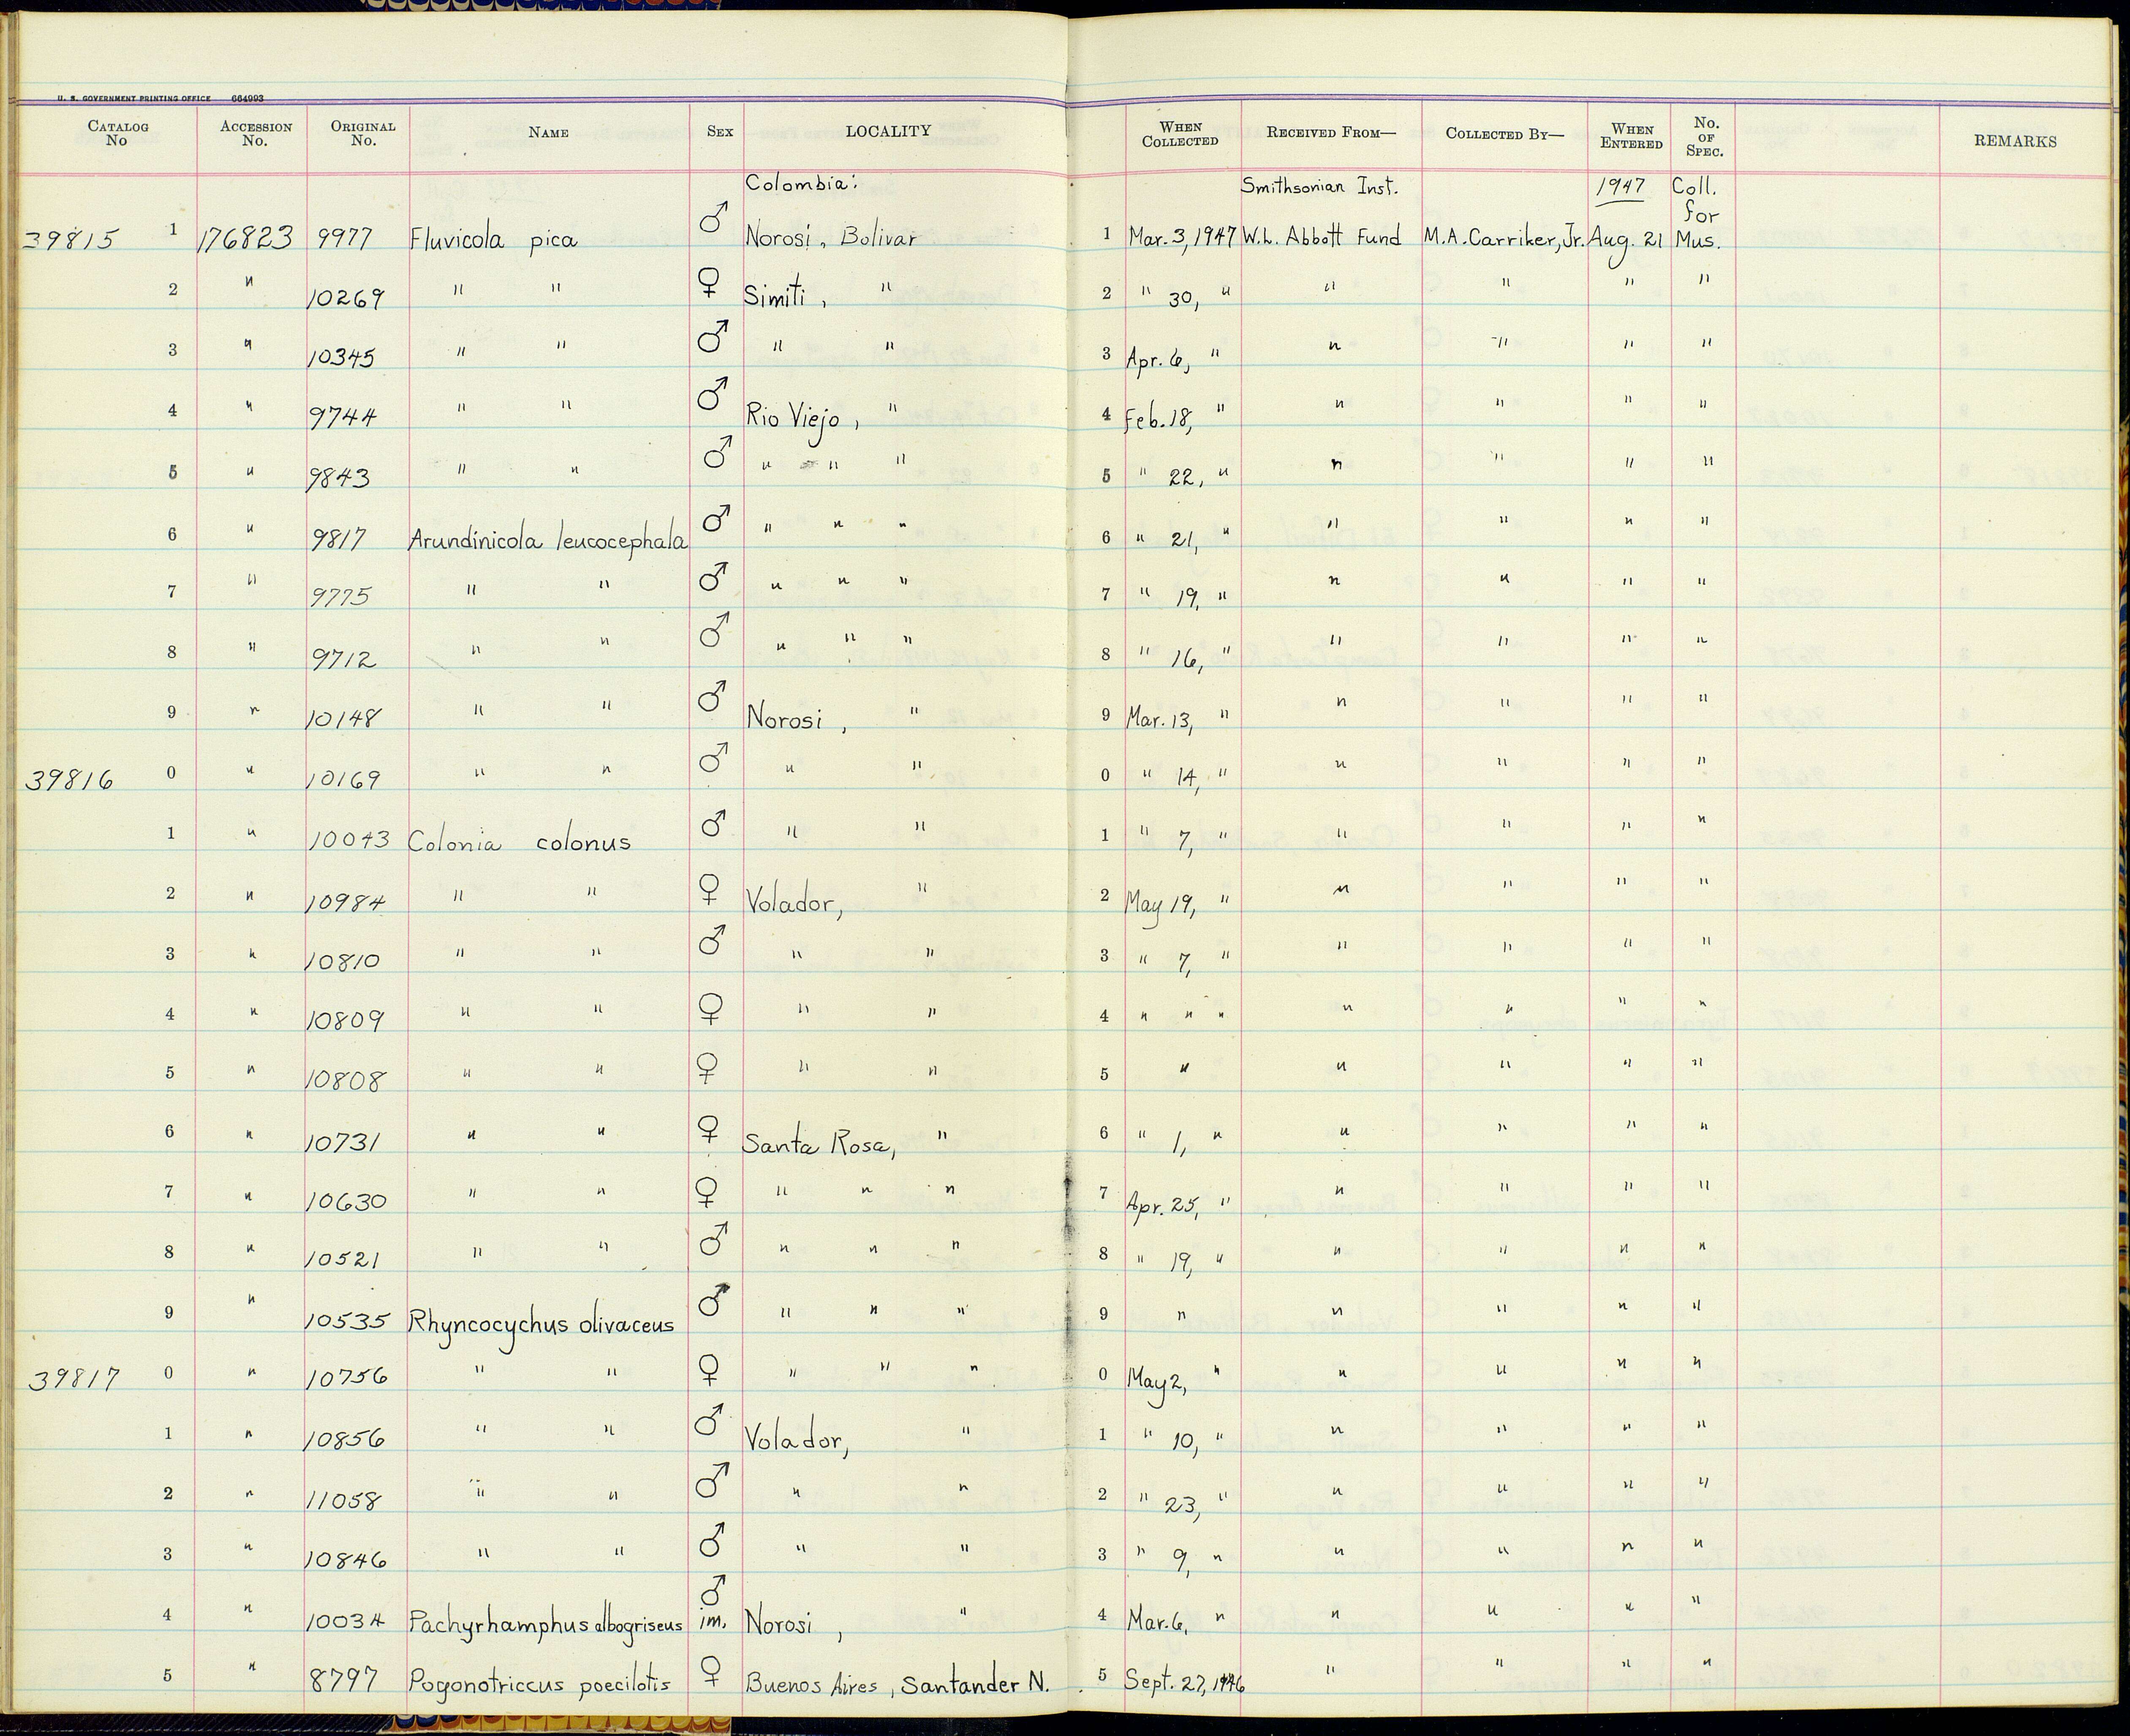 U. S. GOVERNMENT PRINTING OFFICE 664993
CATALOG No ACCESSION No. ORIGINAL No. NAME SEX LOCALITY WHEN COLLECTED RECEIVED FROM— COLLECTED BY— WHEN ENTERED No. OF SPEC. REMARKS
Colombia: Smithsonian Inst. 1947 Coll. for
39815 1 176823 9977 Fluvicola pica ♂ Norosi, Bolivar 1 Mar. 3, 1947 W.L. Abbott Fund M.A. Carriker, Jr. Aug. 21 Mus.
2 " 10269 " " ♀ Simiti, " 2 " 30, " " " " "
3 " 10345 " " ♂ " " 3 Apr. 6, " " " " "
4 " 9744 " " ♂ Rio Viejo, " 4 Feb. 18, " " " " "
5 " 9843 " " ♂ " " " 5 " 22, " " " " "
6 " 9817 Arundinicola leucocephala ♂ " " " 6 " 21, " " " " "
7 " 9775 " " ♂ " " " 7 " 19, " " " " "
8 " 9712 " " ♂ " " " 8 " 16, " " " " "
9 " 10148 " " ♂ Norosi, " 9 Mar. 13, " " " " "
39816 0 " 10169 " " ♂ " " 0 " 14, " " " " "
1 " 10043 Colonia colonus ♂ " " 1 " 7, " " " " "
2 " 10984 " " ♀ Volador, " 2 May 19, " " " " "
3 " 10810 " " ♂ " " 3 " 7, " " " " "
4 " 10809 " " ♀ " " 4 " " " " " " "
5 " 10808 " " ♀ " " 5 " " " " "
6 " 10731 " " ♀ Santa Rosa, " 6 " 1, " " " " "
7 " 10630 " " ♀ " " " 7 Apr. 25, " " " " "
8 " 10521 " " ♂ " " " 8 " 19, " " " " "
9 " 10535 Rhyncocychus olivaceus ♂ " " " 9 " " " " "
39817 0 " 10756 " " ♀ " " " 0 May 2, " " " " "
1 " 10856 " " ♂ Volador, " 1 " 10, " " " " "
2 " 11058 " " ♂ " " 2 " 23, " " " " "
3 " 10846 " " ♂ " " 3 " 9, " " " " "
4 " 10034 Pachyrhamphus albogriseus ♂ im. Norosi, " 4 Mar. 6, " " " " "
5 " 8797 Pogonotriccus poecilotis ♀ Buenos Aires, Santander N. 5 Sept. 27, 1946 " " " "